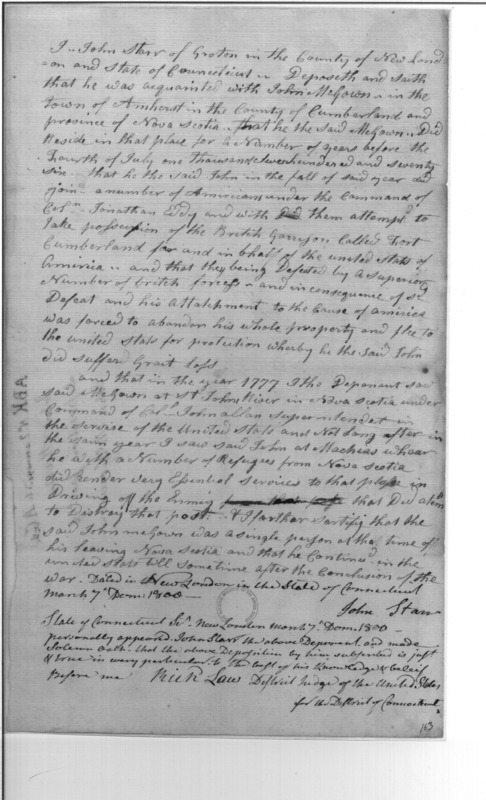 I John Starr of Groton in the County of New Lond
=on and State of Connecticut Deposeth and saith
that he was acquainted with John McGown in the
Town of Amherst in the County of Cumberland and
province of Nova Scotia that he the said McGown Did
Reside in that place for a Number of years before the
fourth of July one thousand seven hundred and seventy
six that he the said John in the fall of said year did
join a number of Americans under the Command of
Coln Jonathan Eddy and with them attempd to
take possession of the British Garrison Called Fort
Cumberland for and in behalf of the united Stats of
America and that they being Defeated by a Superiour
Number of british forces and in consequence of sd
Defeat and his attatchment to the Cause of america
was forced to abandon his whole property and fle to
the united Stats for protection wharby he the Said John
did suffer Grait loss
and that in the year 1777 I the Deponant saw
said McGown at St John River in Nova Scotia under
Command of Col John allan superintendet in
the Service of the United Stats and Not long after in
the same year I saw said John at Machias whare
he with a Number of Refugees from Nova scotia
did render very Esential services to that place in
Driving off the Enemy that Did atempt
to Distroy that post & I farthar sartify that the
said John mcgown was a single person at the time of
his leaving Nova Scotia and that he Continued in the
united Stats till Sometime after the Conclusion of the
war. Dated in New London in the State of Connecticut
March 7 Dom: 1800
John Starr
State of Connecticut Ss. New London March 7. Dom. 1800
personally appeared John Starr the above Deponent and made
Solemn oath that the above Deposition by him subscribed is just
& true in every particular to the best of his knowledge & beleif
Before me Richd Law District Judge of the United States
for the District of Connecticut
163